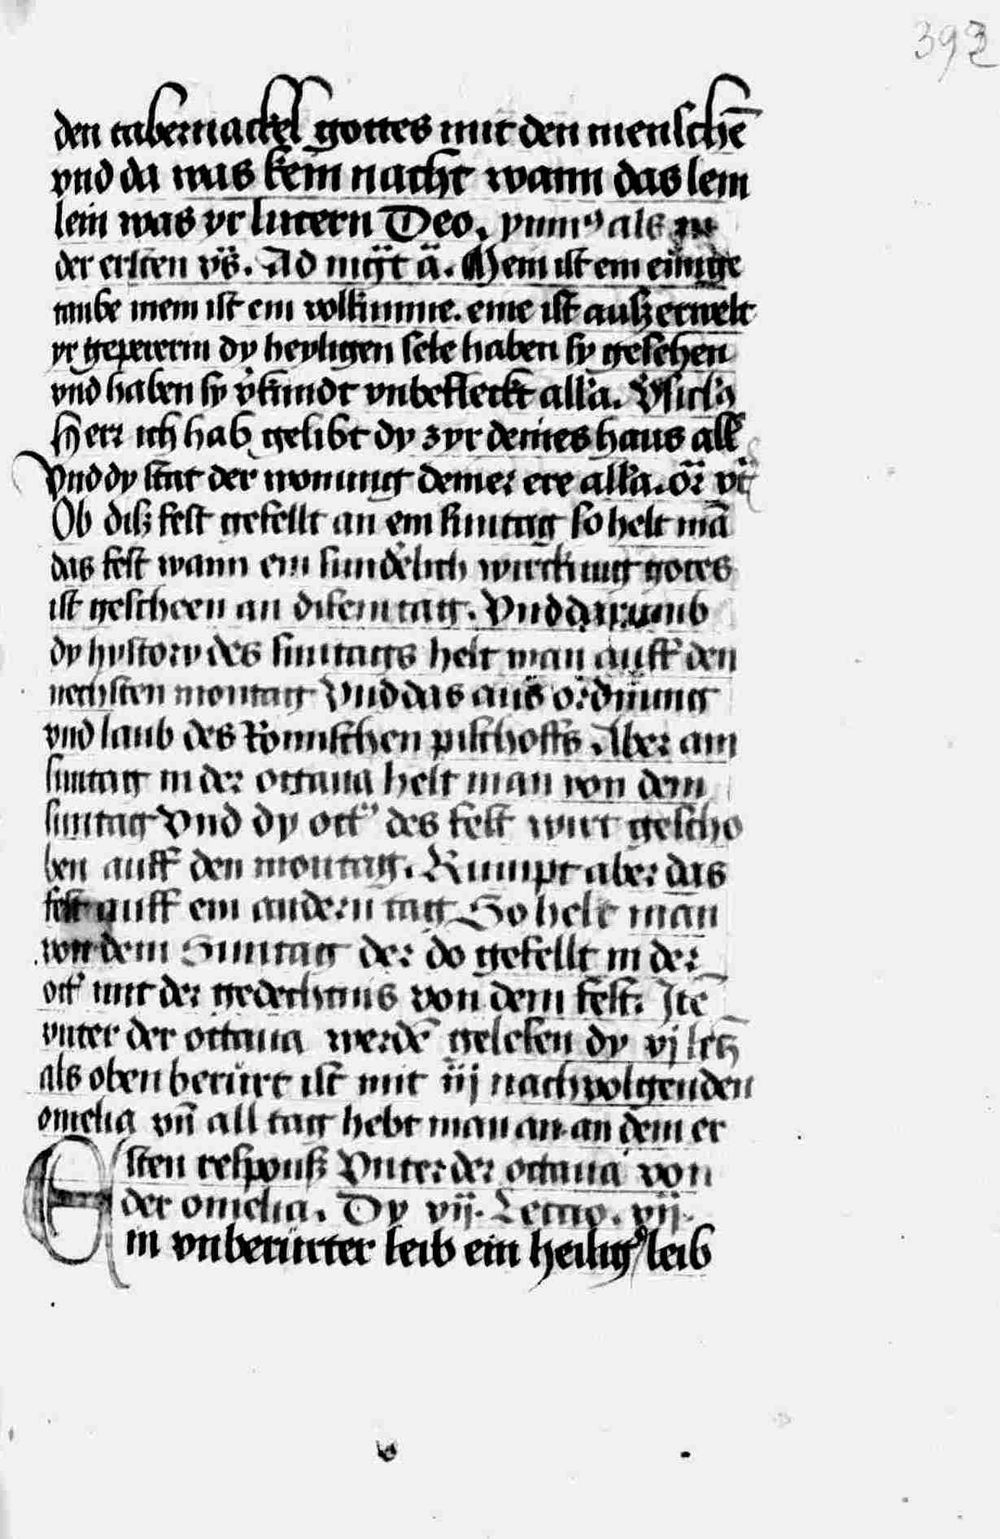 392
den tabernackel gottes mit den menschē
vnd da was kein nacht wann das lem
lein was yr lucern Deo. ymnꝰ als zu
der ersten vꝰ. Ad mgt̄ ā. Mein ist ein einige
taube mein ist ein volkumne. eine ist ausz erwelt
yr gepererin dy heyligen sele haben sy gesehen
vnd haben sy v̓kundt vnbefleckt alła. Vsicłꝰ
Herr ich hab gelibt dy zyr deines haus all̓
Vnd dy stat der wonung deiner ere alła. or̄ vt̄
Ob disz fest gefellt an ein suntag so helt mā
das fest wann ein sunderlich wirckung gotes
ist gescheen an disem tag. Vnd darumb
dy hystory des suntags helt man auff den
nechsten montag Vnd das aus ordnung
vnd laub des Romischen pischoffs. Aber am
suntag in der octaua helt man von dem
suntag Vnd dy oct̓ des fest wirt gescho
ben auff den montag. Kumpt aber das
fest auff ein andern tag So helt man
von dem Suntag der do gefellt in der
oct̓ mit der gedechtnis von dem fest. Itē
vnter der octaua werdē gelesen dy vj letz̄
als oben berürt ist mit iij nachvolgenden
omelia vn̄ all tag hebt man an an dem er
sten responsz Vnter der octaua von
der omelia. Dy vij. Lectio. vij.
Ein vnberürter leib ein heiligꝰ leib